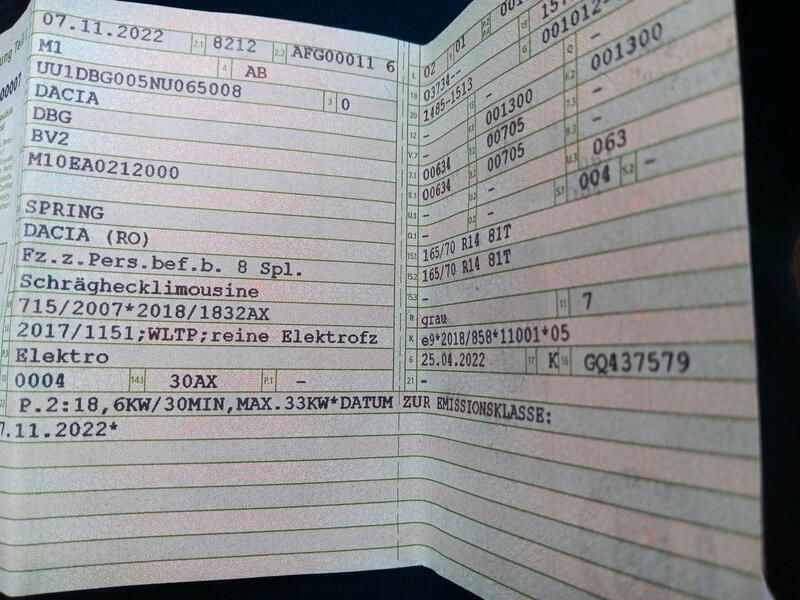 07.11.2022 2.1 8212 2.2 AFG00011 6
M1 4 AB
UU1DBG005NU065008 3 0
DACIA
DBG
BV2
M10EA0212000
SPRING
DACIA (RO)
Fz.z.Pers.bef.b. 8 Spl.
Schräghecklimousine
715/2007*2018/1832AX
2017/1151;WLTP;reine Elektrofz
Elektro
0004 14.1 30AX P.1 -
P.2:18,6KW/30MIN,MAX.33KW*DATUM ZUR EMISSIONSKLASSE:
7.11.2022*
L 02 9 01
18 03734-- 19
20 1485-1513 G 001012-
12 - 13 - Q -
V.7 - F.1 001300 F.2 001300
7.1 00634 7.2 00705 7.3 -
8.1 00634 8.2 00705 8.3 -
U.1 - U.2 - U.3 063
O.1 - O.2 - S.1 004 S.2 -
15.1 165/70 R14 81T
15.2 165/70 R14 81T
15.3 -
R grau 11 7
K e9*2018/858*11001*05
6 25.04.2022 17 K 16 GQ437579
21 -